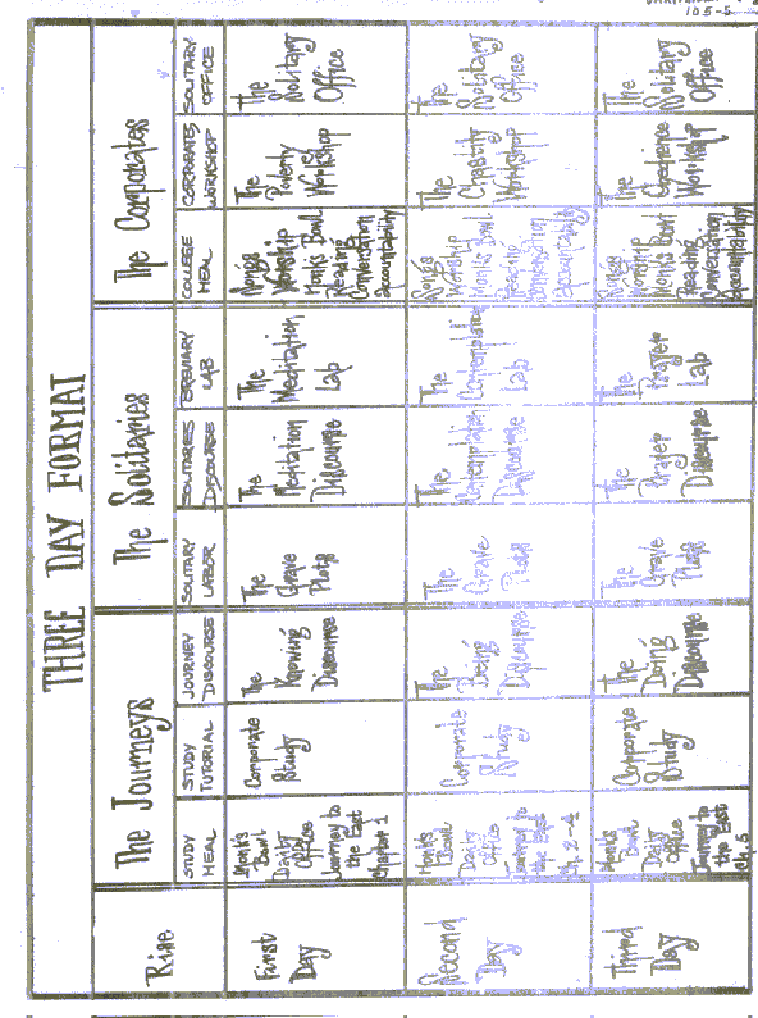 105-5
THREE DAY FORMAT
The Journeys
The Solitaries
The Corporates
STUDY
MEAL
STUDY
TUTORIAL
JOURNEY
DISCOURSE
SOLITARY
LABOR
SOLITARIES
DISCOURSE
BREVIARY
LAB
COLLEGE
MEAL
CORPORATES
WORKSHOP
SOLITARY
OFFICE
Rise
First
Day
Monk's
Bowl
Daily
Office
Journey to
the East
Chapter 1
Corporate
Study
The
Knowing
Discourse
The
Grave
Plots
The
Meditation
Discourse
The
Meditation
Lab
Songs
Worship
Monk's Bowl
Reading
Conversation
Accountability
The
Poverty
Workshop
The
Solitary
Office
Second
Day
Monk's
Bowl
Daily
Office
Journey to
the East
Ch. 2-4
Corporate
Study
The
Being
Discourse
The
Grave
Plots
The
Contemplation
Discourse
The
Contemplation
Lab
Songs
Worship
Monk's Bowl
Reading
Conversation
Accountability
The
Chastity
Workshop
The
Solitary
Office
Third
Day
Monk's
Bowl
Daily
Office
Journey to
the East
Ch. 5
Corporate
Study
The
Doing
Discourse
The
Grave
Plots
The
Prayer
Discourse
The
Prayer
Lab
Songs
Worship
Monk's Bowl
Reading
Conversation
Accountability
The
Obedience
Workshop
The
Solitary
Office